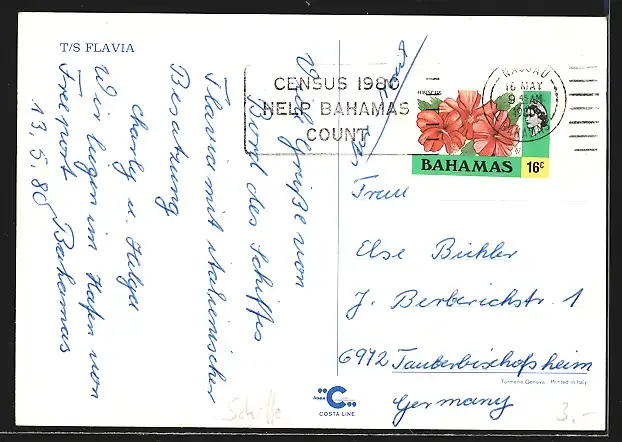 T/S FLAVIA
Viele Grüße von
Bord des Schiffes
Flavia mit italienischer
Besatzung
Charly u. Helga
Wir liegen im Hafen von
Freeport Bahamas
13.5.80
CENSUS 1980
HELP BAHAMAS
COUNT
NASSAU
16 MAY
9 AM
BAHAMAS
HIBISCUS
BAHAMAS 16c
Frau
Else Bichler
J. Berberichstr. 1
6972 Tauberbischofsheim
Germany
Tormena Genova - Printed in Italy
linea C
COSTA LINE
Schiffe
3,-